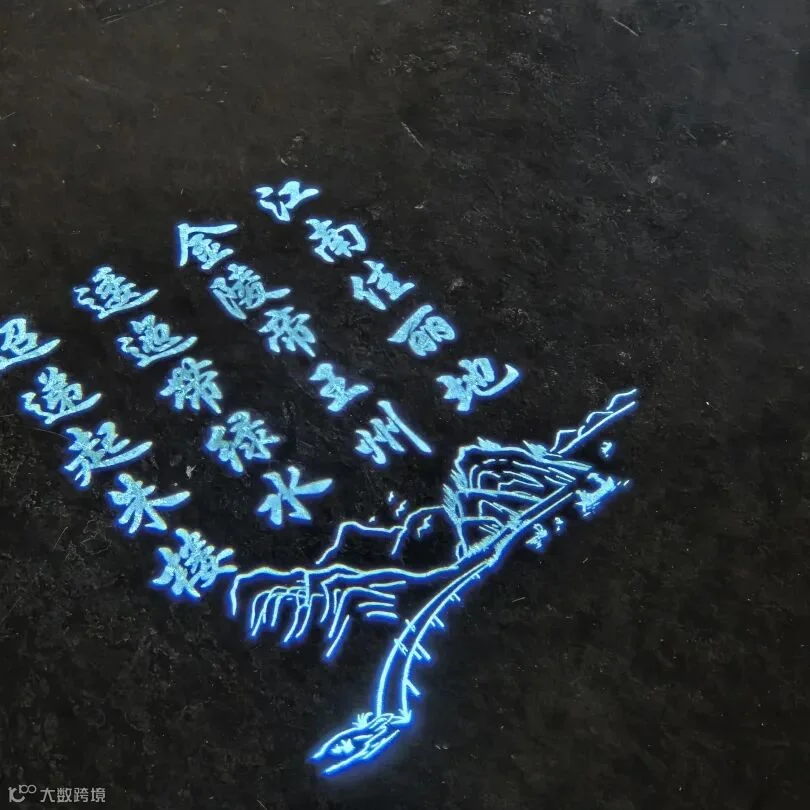 江南佳丽地
金陵帝王州
逶迤带绿水
迢递起朱楼
大数跨境